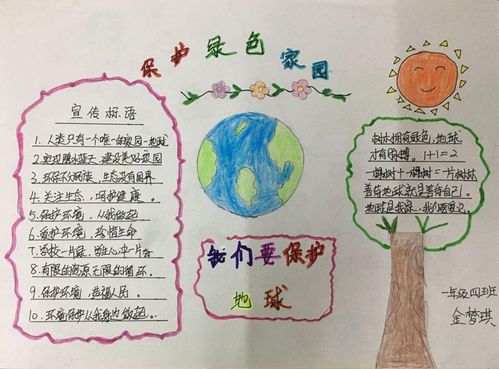 保护绿色家园
宣传标语
1. 人类只有一个唯一的家园-地球
2. 实现碧水蓝天,建设美好家园
3. 环保不分民族,生态没有国界
4. 关注生态,呵护健康。
5. 保护环境,从我做起
6. 爱护环境,珍惜生命
8. 有限的资源无限的循环。
9. 保护环境,造福人民。
10. 环境保护从我身边做起。
我们要保护
地球
树木拥有绿色,地球
才有脉搏。1+1=2
一棵树+一棵树=一片树林
善待地球就是善待自己。
地球是我家,我们爱
一年级四班
金梦琪